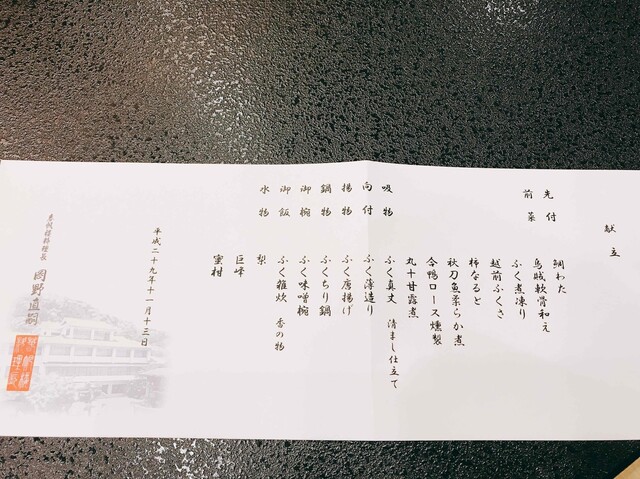 献立
先付
鯛わた
烏賊軟骨和え
前菜
ふく煮凍り
越前ふくさ
柿なると
秋刀魚柔らか煮
合鴨ロース燻製
丸十甘露煮
吸物
ふく真丈 清まし仕立て
向付
ふく薄造り
揚物
ふく唐揚げ
鍋物
ふくちり鍋
御椀
ふく味噌椀
御飯
ふく雑炊 香の物
水物
梨
巨峰
蜜柑
平成二十九年十一月十三日
料理長 岡野直嗣